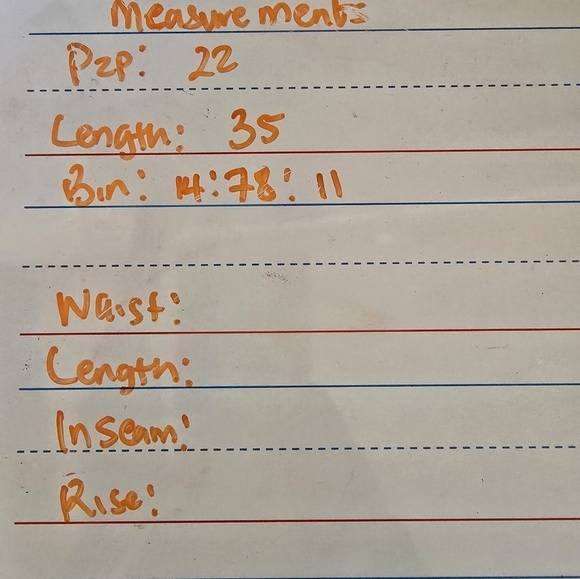 Measurements
P2P: 22
Length: 35
Bin: 14:78:11
Waist:
Length:
Inseam:
Rise: